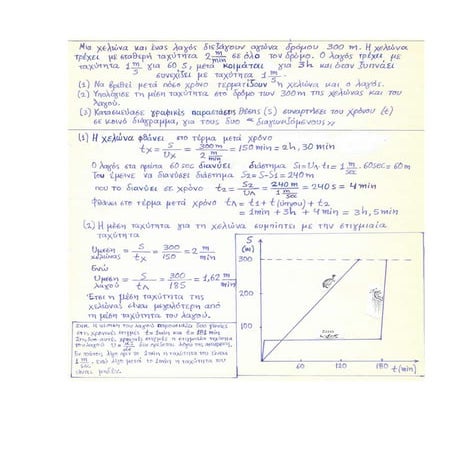 Μια χελώνα και ένας λαγός διεξάγουν αγώνα δρόμου 300 m. Η χελώνα
τρέχει με σταθερή ταχύτητα 2 m/min σε όλο τον δρόμο. Ο λαγός τρέχει με
ταχύτητα 1 m/s για 60 s, μετά κοιμάται για 3h και όταν ξυπνάει
συνεχίζει με ταχύτητα 1 m/s.
(1) Να βρεθεί μετά πόσο χρόνο τερματίζουν η χελώνα και ο λαγός.
(2) Υπολόγισε τη μέση ταχύτητα στο δρόμο των 300m της χελώνας και του
λαγού.
(3) Κατασκεύασε γραφικές παραστάσεις θέσης (S) συναρτήσει του χρόνου (t)
σε κοινό διάγραμμα, για τους δυο «διαγωνιζόμενους»
(1) Η χελώνα φθάνει στο τέρμα μετά χρόνο
tx = S/Ux = 300m / 2 m/min = 150 min = 2h, 30 min
Ο λαγός στα πρώτα 60 sec διανύει διάστημα S1 = UΛ·t1 = 1 m/sec · 60sec = 60 m
Του έμεινε να διανύσει διάστημα S2 = S-S1 = 240 m
που το διανύει σε χρόνο t2 = S2/UΛ = 240 m / 1 m/sec = 240 s = 4 min
Φθάνει στο τέρμα μετά χρόνο tΛ = t1 + t (ύπνου) + t2
= 1min + 3h + 4 min = 3h, 5 min
(2) Η μέση ταχύτητα για τη χελώνα συμπίπτει με την στιγμιαία
ταχύτητα
Uμέση χελώνας = S/tx = 300/150 = 2 m/min
Ενώ
Uμέση λαγού = S/tΛ = 300/185 = 1,62 m/min
Έτσι η μέση ταχύτητα της
χελώνας είναι μεγαλύτερη από
τη μέση ταχύτητα του λαγού.
S
(m)
300
200
100
0
60
120
180
t (min)